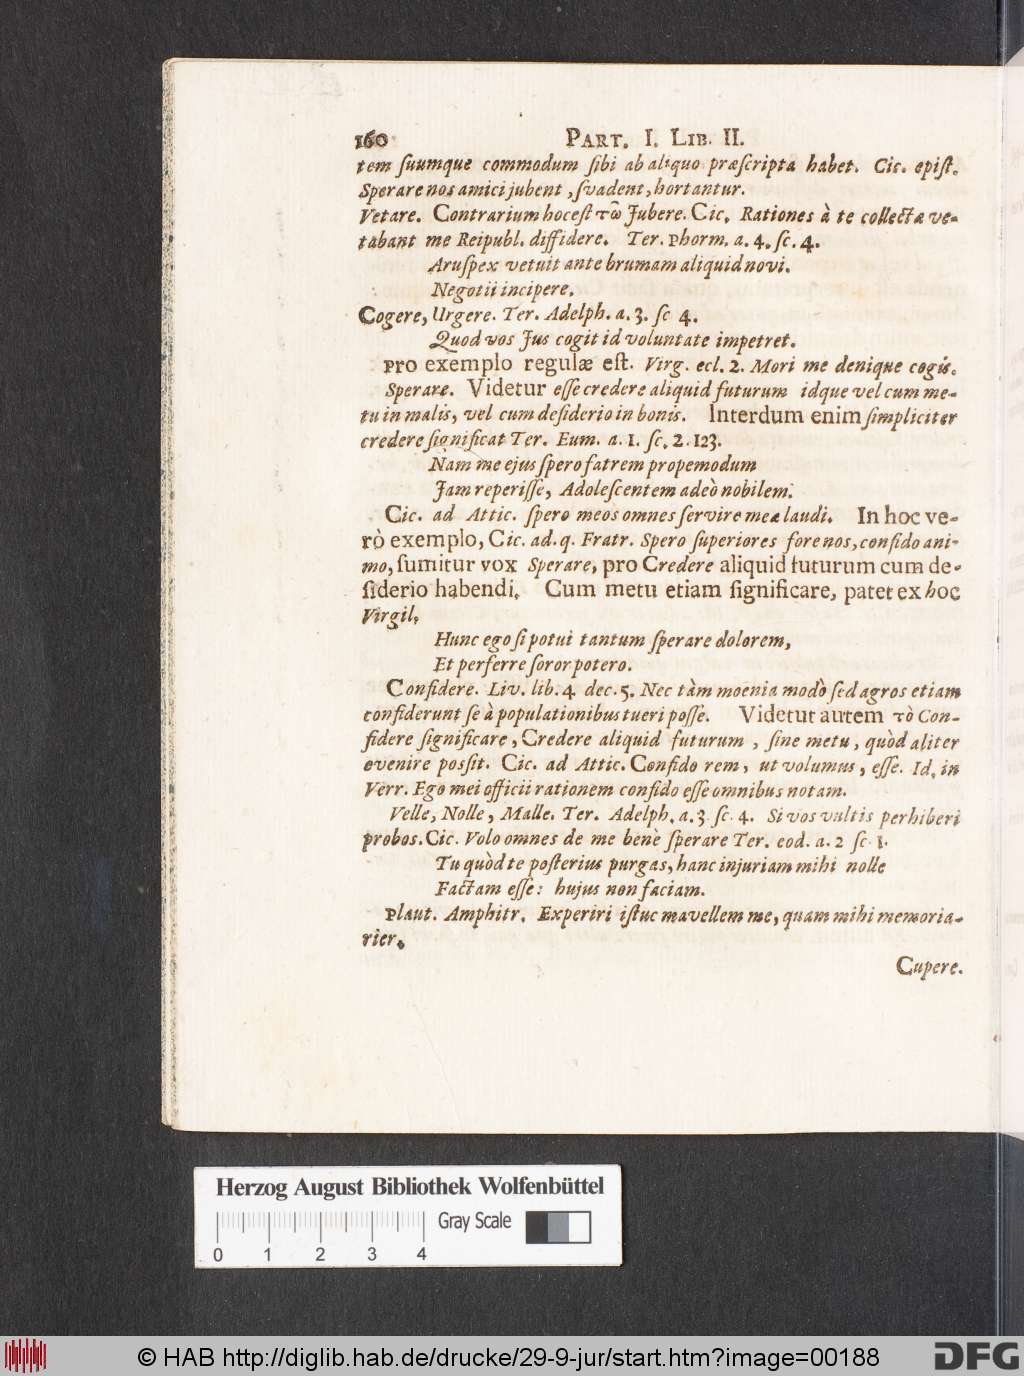 160 PART. I. LIB. II.
tem ſuumque commodum ſibi ab aliquo præſcripta habet. Cic. epiſt.
Sperare nos amici jubent, ſvadent, hortantur.
Vetare. Contrarium hoc eſt τῶ Jubere. Cic. Rationes à te collectæ ve-
tabant me Reipubl. diffidere. Ter. Phorm. a. 4. ſc. 4.
Aruſpex vetuit ante brumam aliquid novi.
Negotii incipere.
Cogere, Urgere. Ter. Adelph. a. 3. ſc 4.
Quod vos Jus cogit id voluntate impetret.
Pro exemplo regulæ eſt. Virg. ecl. 2. Mori me denique cogis.
Sperare. Videtur eſſe credere aliquid futurum idque vel cum me-
tu in malis, vel cum deſiderio in bonis. Interdum enim ſimpliciter
credere ſignificat Ter. Eum. a. 1. ſc. 2. 123.
Nam me ejus ſpero fatrem propemodum
Jam reperiſſe, Adoleſcentem adeò nobilem.
Cic. ad Attic. ſpero meos omnes ſervire meæ laudi. In hoc ve-
rò exemplo, Cic. ad. q. Fratr. Spero ſuperiores fore nos, confido ani-
mo, ſumitur vox Sperare, pro Credere aliquid futurum cum de-
ſiderio habendi. Cum metu etiam ſignificare, patet ex hoc
Virgil.
Hunc ego ſi potui tantum ſperare dolorem,
Et perferre ſoror potero.
Confidere. Liv. lib. 4. dec. 5. Nec tàm moenia modò ſed agros etiam
confiderunt ſe à populationibus tueri poſſe. Videtur autem τὸ Con-
fidere ſignificare, Credere aliquid futurum, ſine metu, quòd aliter
evenire poſſit. Cic. ad Attic. Confido rem, ut volumus, eſſe. Id. in
Verr. Ego mei officii rationem confido eſſe omnibus notam.
Velle, Nolle, Malle. Ter. Adelph. a. 3. ſc. 4. Si vos vultis perhiberi
probos. Cic. Volo omnes de me benè ſperare Ter. eod. a. 2 ſc. 1.
Tu quòd te poſterius purgas, hanc injuriam mihi nolle
Factam eſſe: hujus non faciam.
Plaut. Amphitr. Experiri iſtuc mavellem me, quam mihi memoria-
rier.
Cupere.
Herzog August Bibliothek Wolfenbüttel
Gray Scale
0 1 2 3 4
© HAB http://diglib.hab.de/drucke/29-9-jur/start.htm?image=00188
DFG